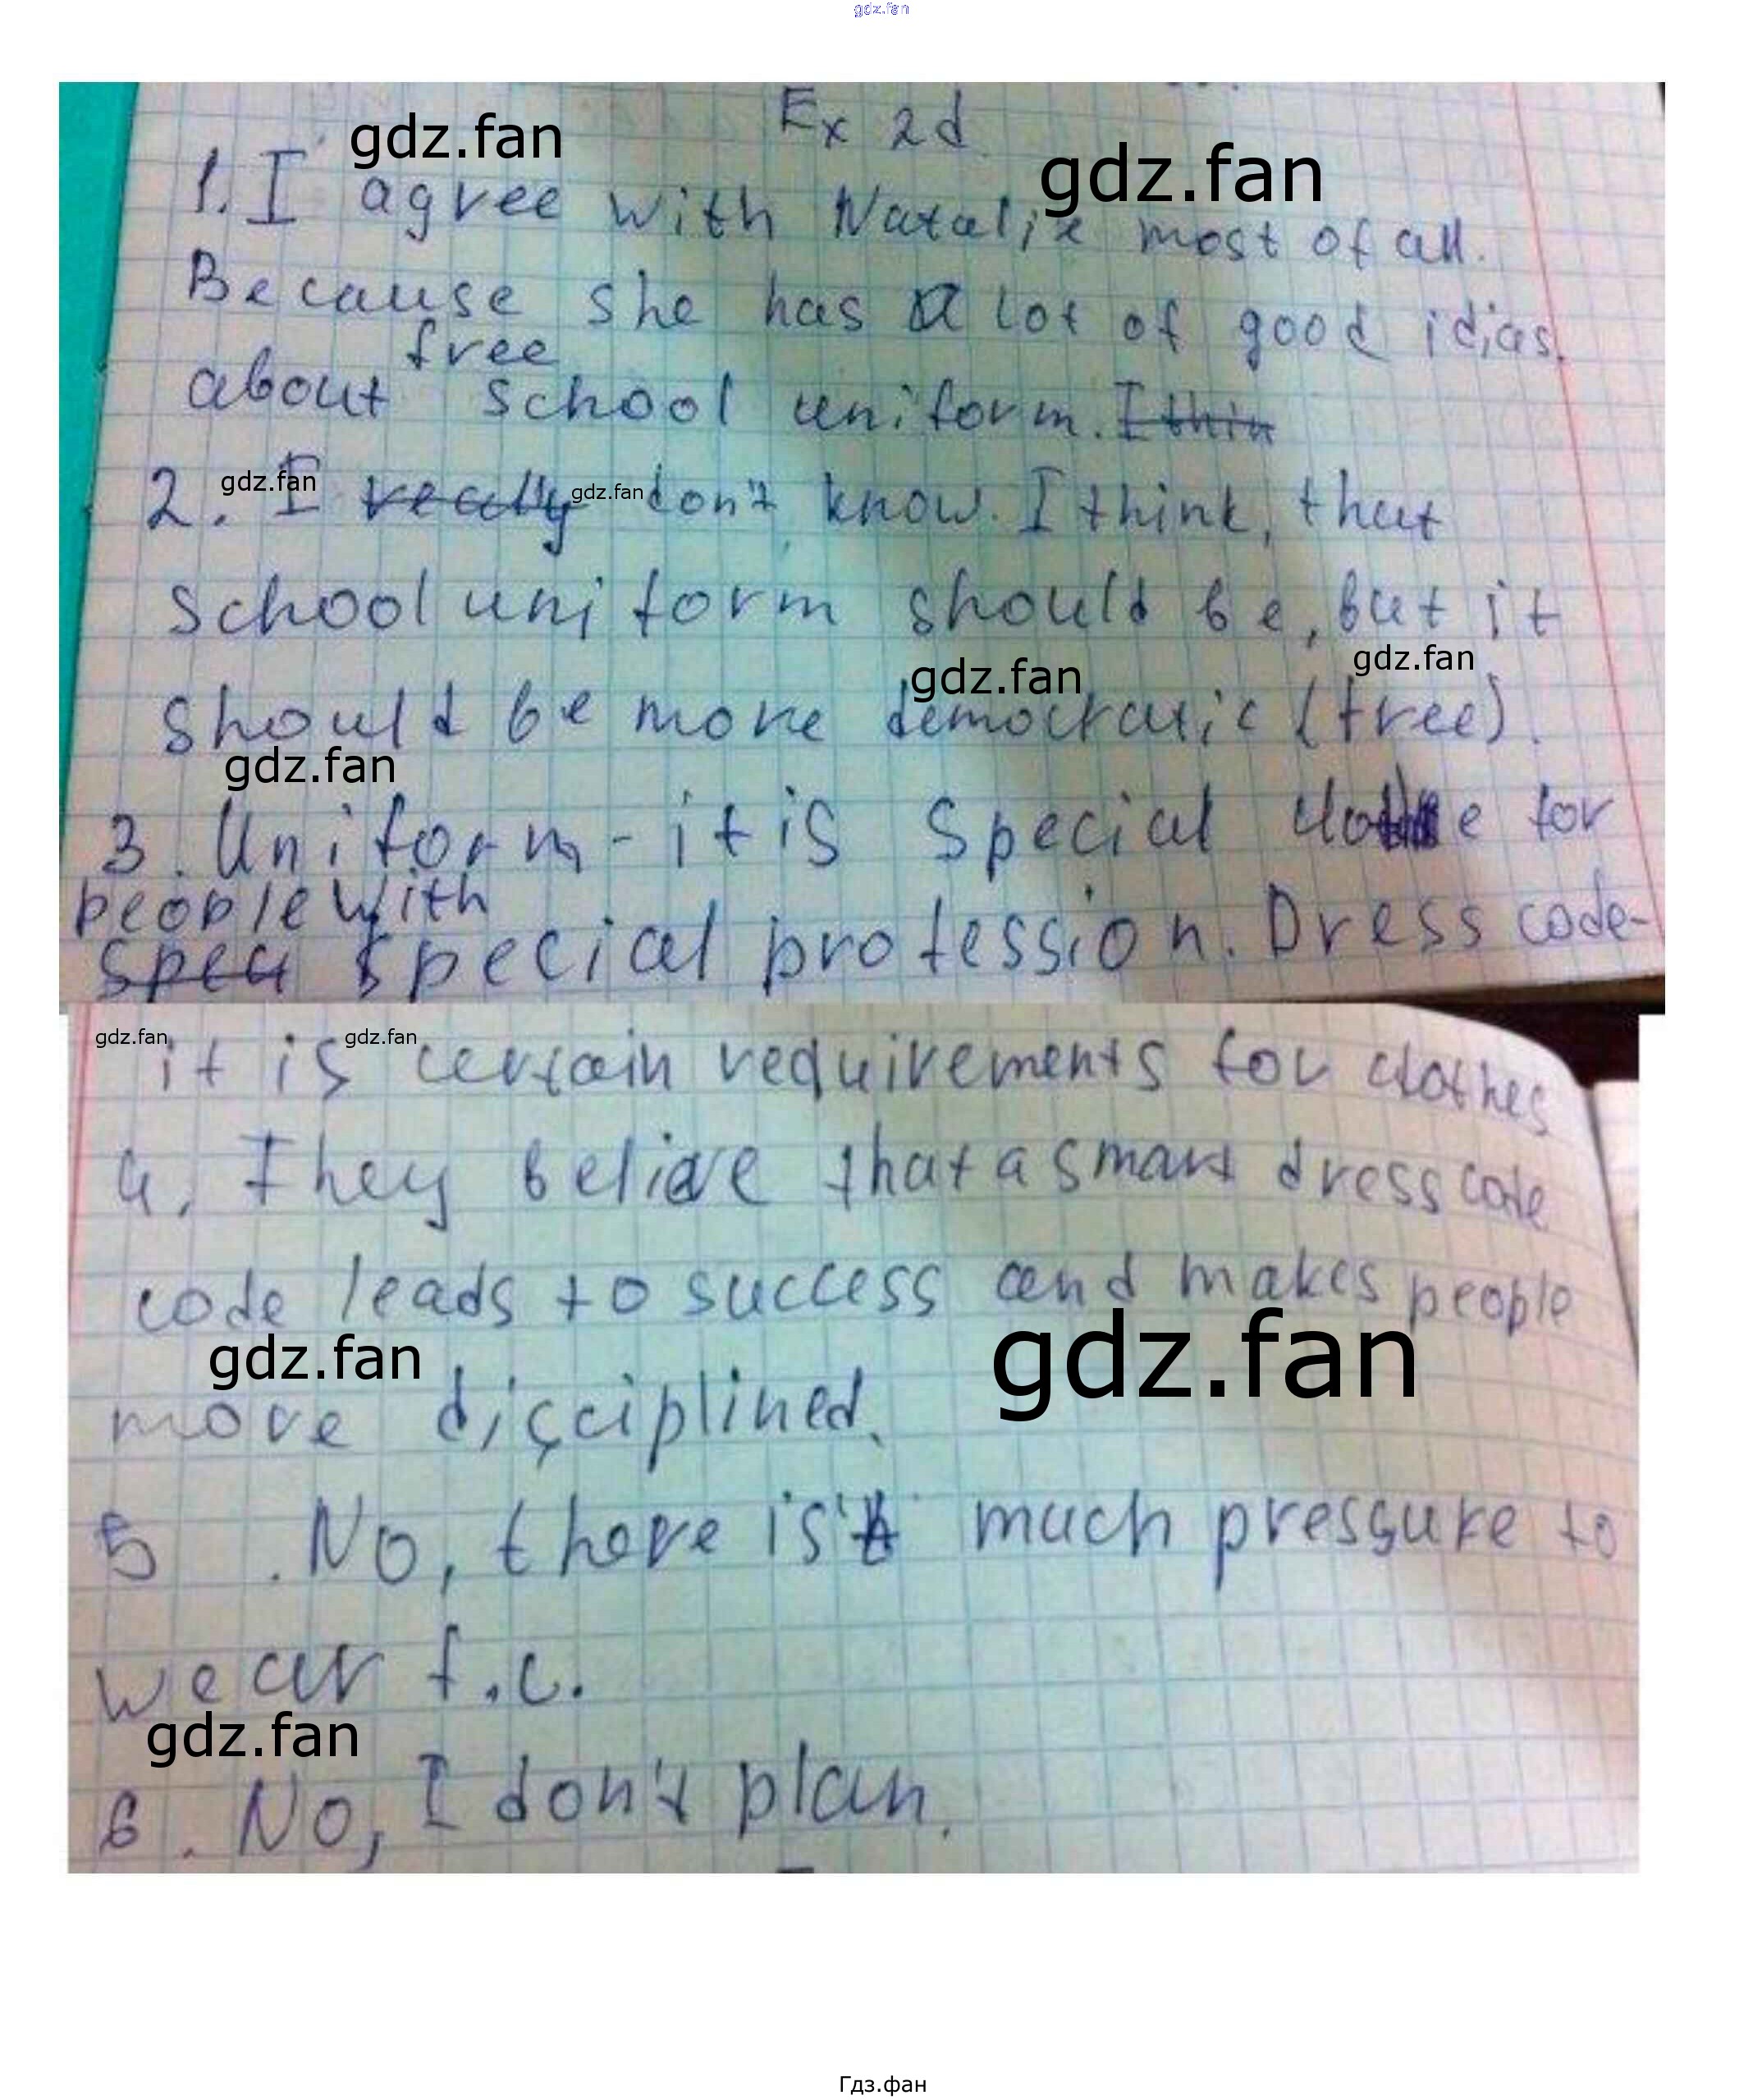 gdz.fan
Ex 2d
gdz.fan
gdz.fan
1. I agree with Natalie most of all.
Because she has a lot of good idias
free
about school uniform. I thin
gdz.fan
gdz.fan
2. I really don't know. I think, that
school uniform should be, but it
gdz.fan
gdz.fan
should be more democratic (free).
gdz.fan
3. Uniform - it is special for
people with
spec special profession. Dress code-
gdz.fan
gdz.fan
it is certain requirements for clothes
4. They believe that a smart dress code
code leads to success and makes people
gdz.fan
gdz.fan
more disciplined.
5. No, there is't much pressure to
wear f.c.
gdz.fan
6. No, I don't plan.
Гдз.фан